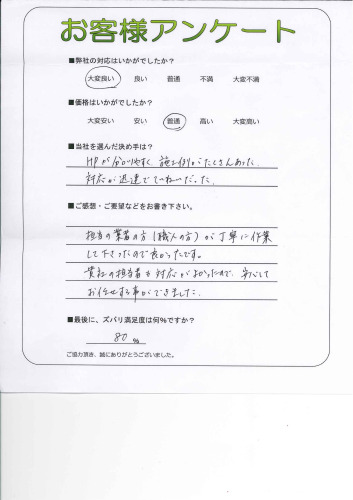 お客様アンケート
■弊社の対応はいかがでしたか?
大変良い 良い 普通 不満 大変不満
■価格はいかがでしたか?
大変安い 安い 普通 高い 大変高い
■当社を選んだ決め手は?
HPが分かりやすく、施工例がたくさんあった。
対応が迅速でていねいだった。
■ご感想・ご要望などをお書き下さい。
担当の業者の方(職人の方)が丁寧に作業
して下さったので良かったです。
貴社の担当者も対応がよかったので、安心して
お任せする事ができました。
■最後に、ズバリ満足度は何%ですか?
80 %
ご協力頂き、誠にありがとうございました。